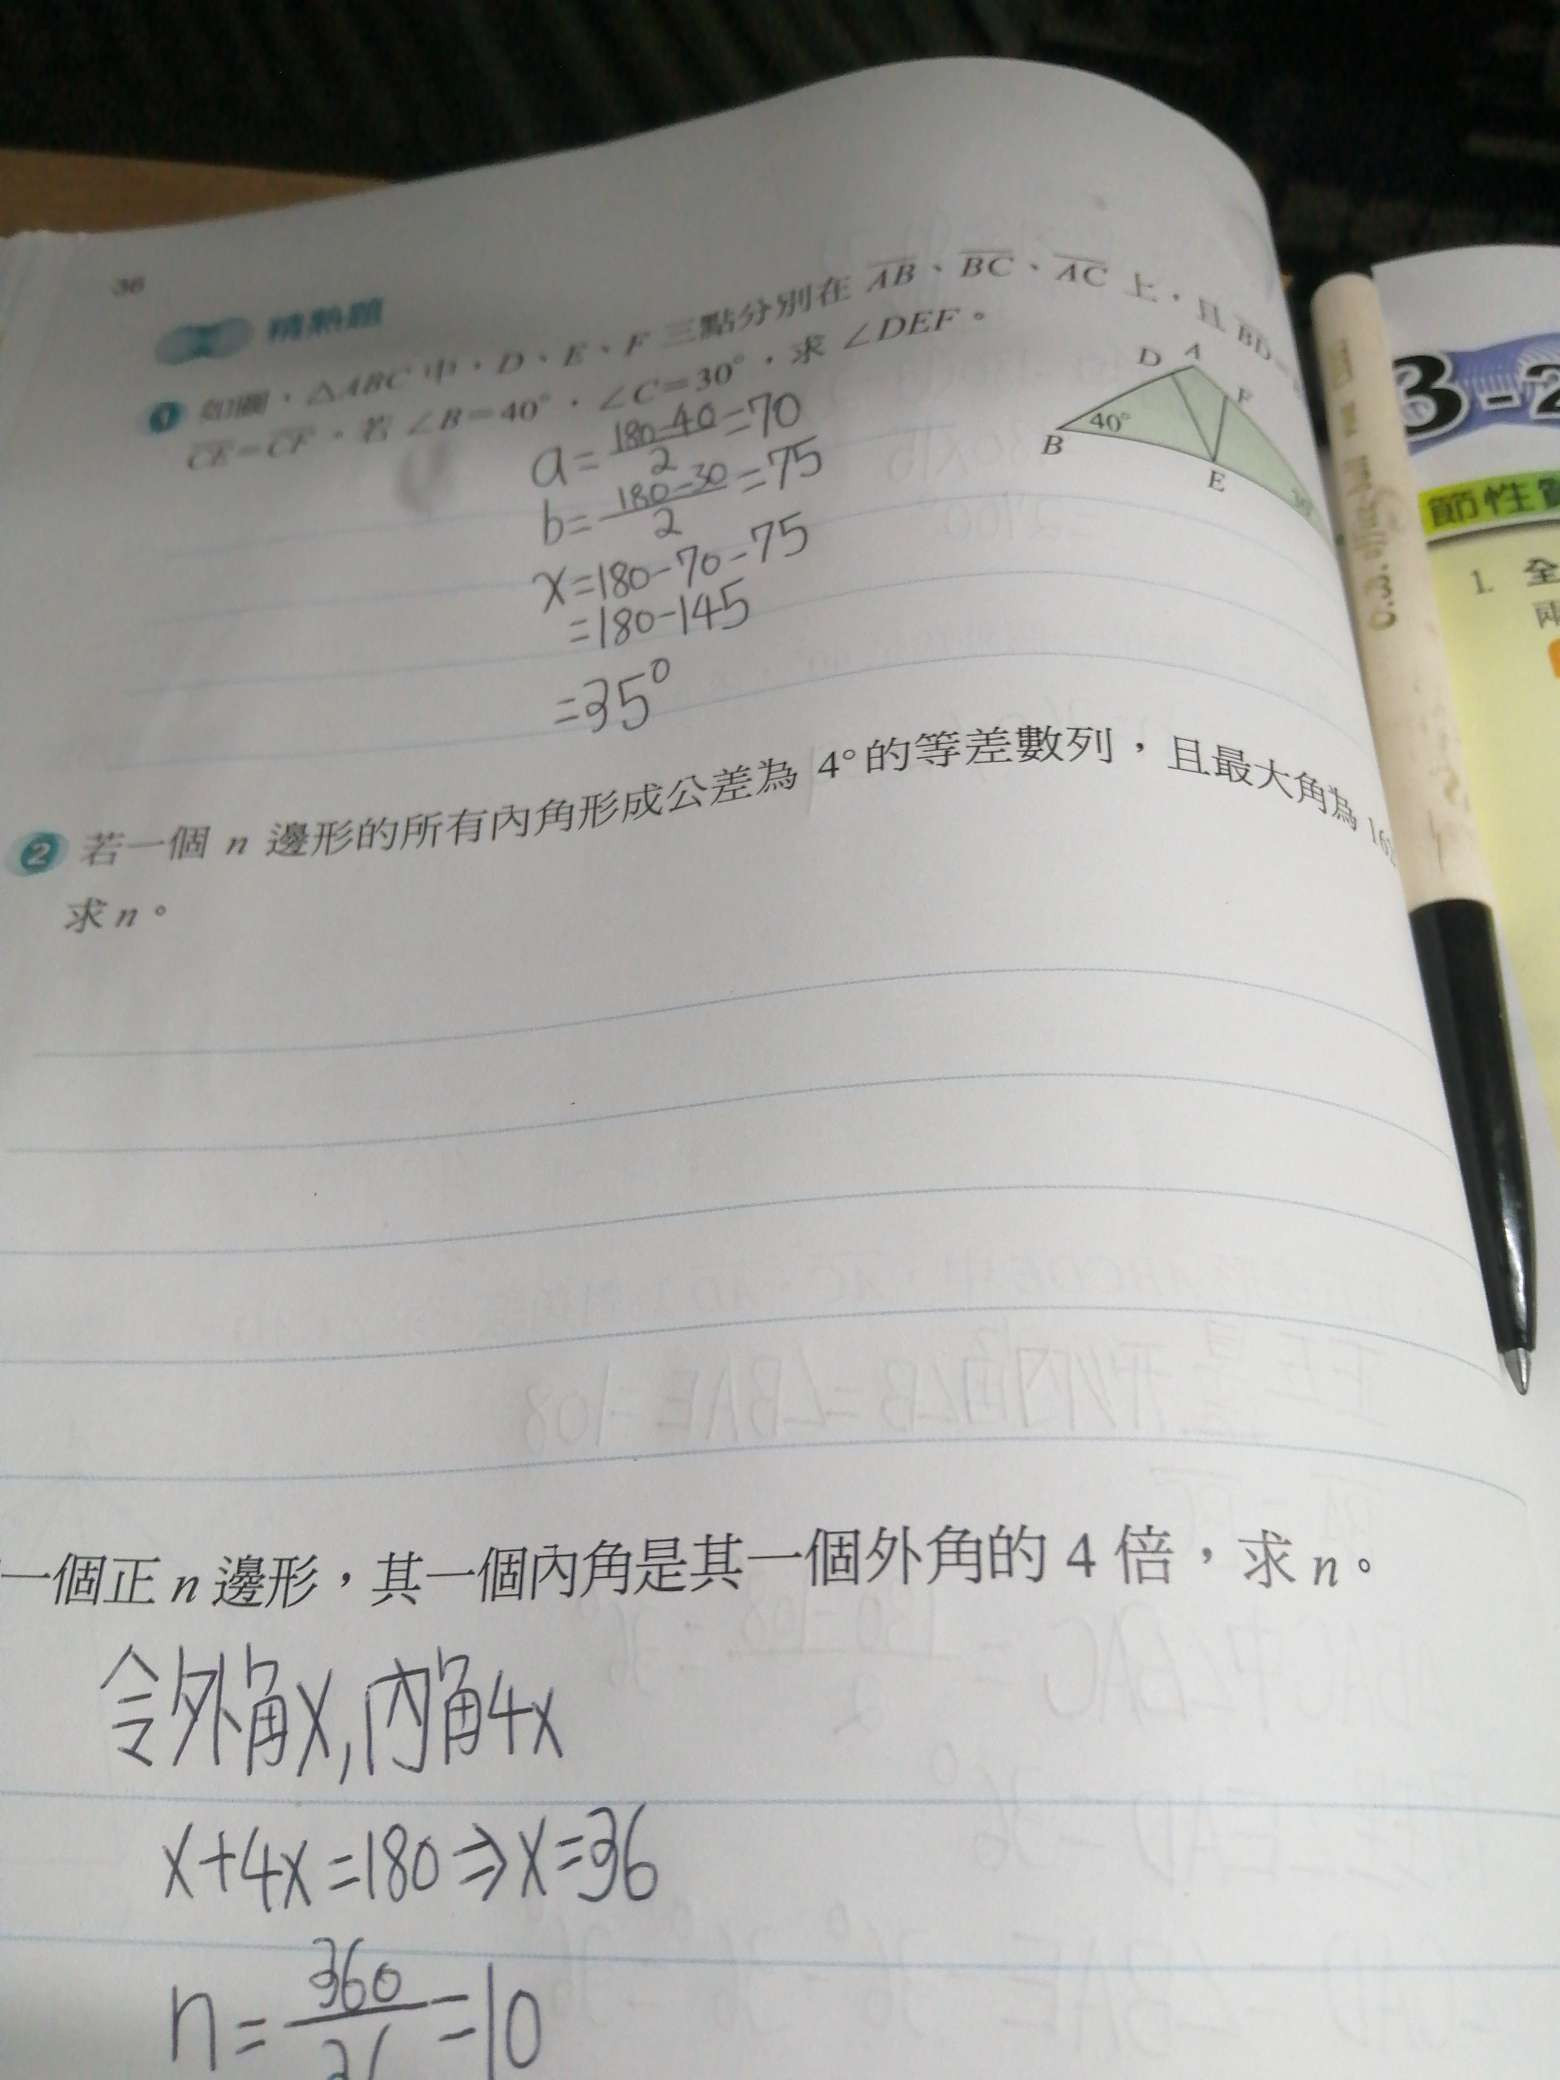 36
精熟題
1 如圖，△ABC 中，D、E、F 三點分別在 AB、BC、AC 上，且 BD=
CE=CF。若 ∠B=40°，∠C=30°，求 ∠DEF。
D A
F
40°
B
E
30°
a=180-40/2=70
b=180-30/2=75
x=180-70-75
=180-145
=35°
2 若一個 n 邊形的所有內角形成公差為 4° 的等差數列，且最大角為 162
求 n。
一個正 n 邊形，其一個內角是其一個外角的 4 倍，求 n。
令外角x,內角4x
x+4x=180⇒x=36
n=360/36=10
3-2
節性質
1. 全